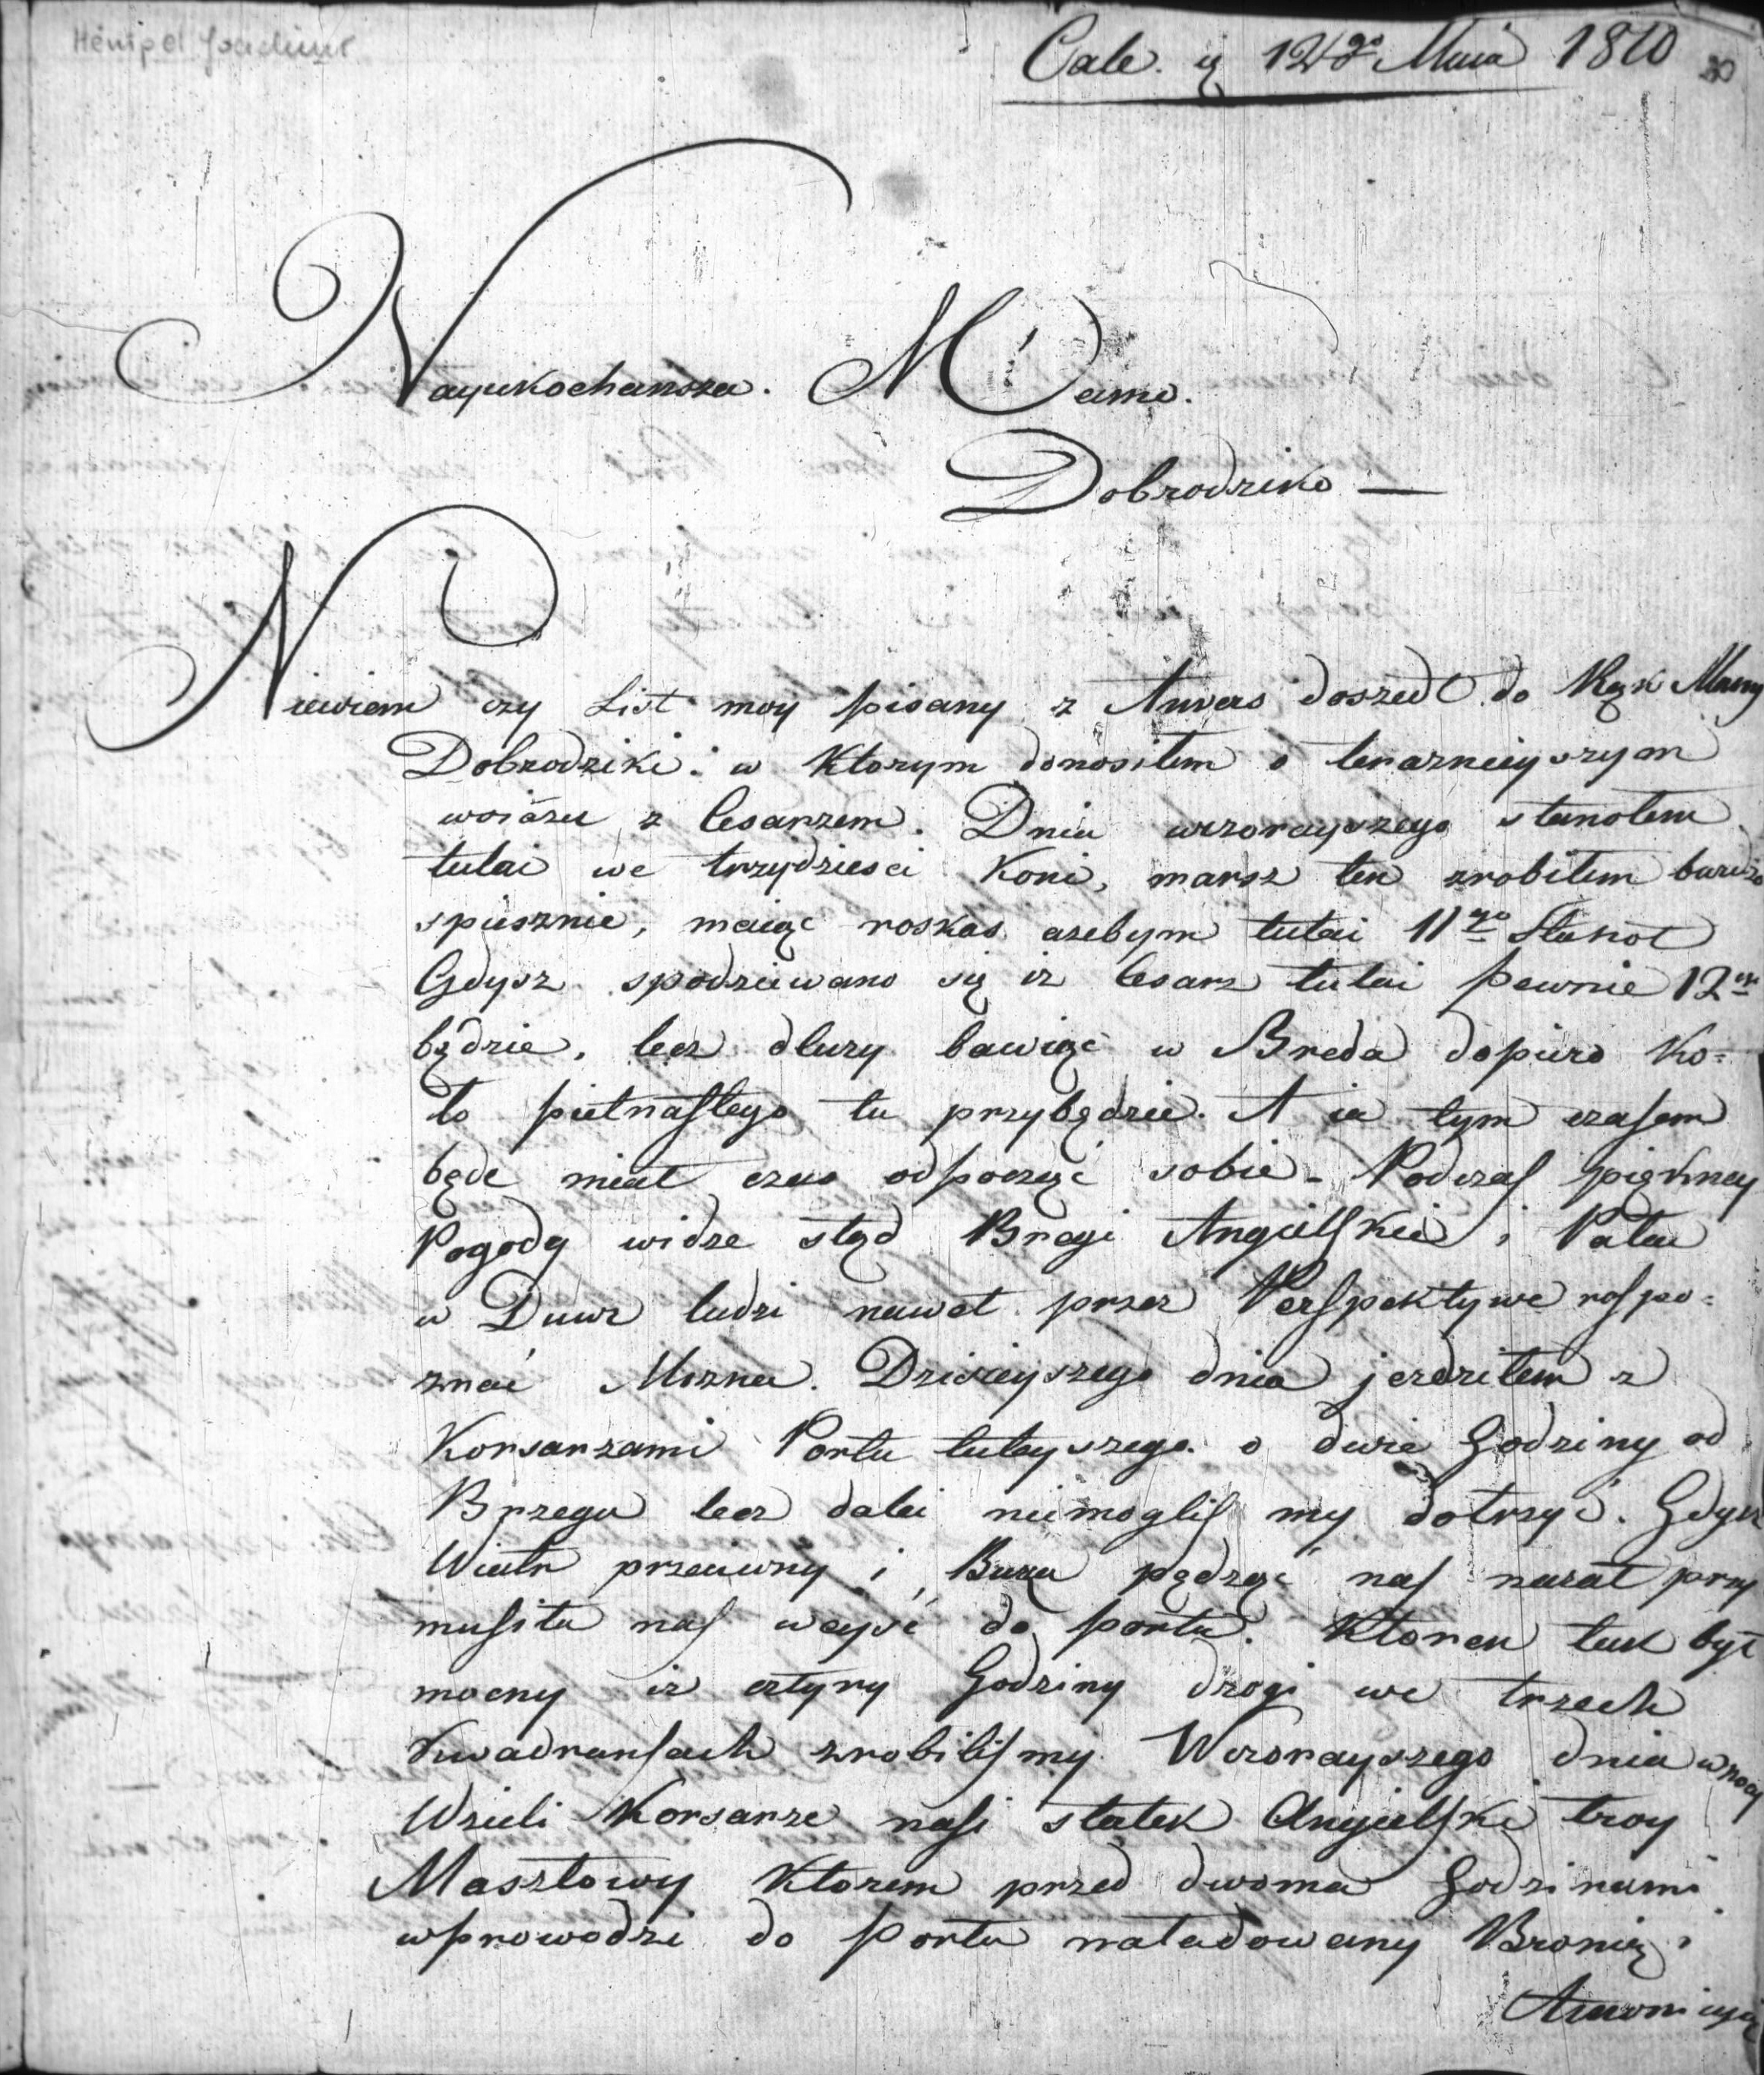 Hempel Joachim
Cale. ię 12go Maia 1810
Nayukochansza. Mamo.
Dobrodziko —
Niewiem czy List moy pisany z Anvers doszedł do Rąk Mamy
Dobrodziki. w Ktorym donosiłem o teraznieyszym
woiażu z Cesarzem. Dnia wczorayszego stanołem
tutai we trzydziesci Koni, marsz ten zrobiłem bardzo
spiesznie, maiąc roskas azebym tutai 11go Stanoł
Gdysz spodziewano się iz Cesarz tutai pewnie 12go
będzie, lecz dłuzy bawiąc w Breda dopiero Ko=
ło pietnastego tu przybędzie. A ia tym czasem
będe miał czas odpocząć sobie - Podczas piękney
Pogody widze stąd Brzegi Angielskie i Pałac
w Duwr ludzi nawet przez Perspektywe rospo=
znać Mozna. Dzisieyszego dnia jezdziłem z
Korsarzami Portu tuteyszego o dwie Godziny od
Brzegu lecz dalei niemoglismy dotrzyć. Gdysz
Wiatr przeciwny i Burza pędząc nas nazat przy
musiła nas weyść do portu. Ktoren tak był
mocny iz cztyry Godziny drogi we trzech
Kwadransach zrobilismy Wczorayszego dnia w nocy
Wzieli Korsarze nasi statek Angielski troy
Masztowy Ktorem przed dwoma Godzinami
wprowodzi do Portu naładowany Bronią i
Amonicyą